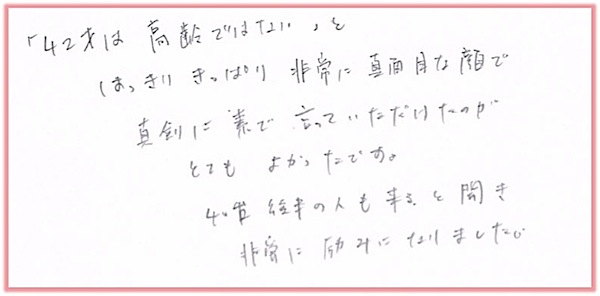 「42才は 高齢ではない。」と
はっきり きっぱり 非常に真面目な顔で
真剣に 素で 言っていただけたのが
とても よかったです。
40代 後半の人も 来ると聞き
非常に 励みになりました。